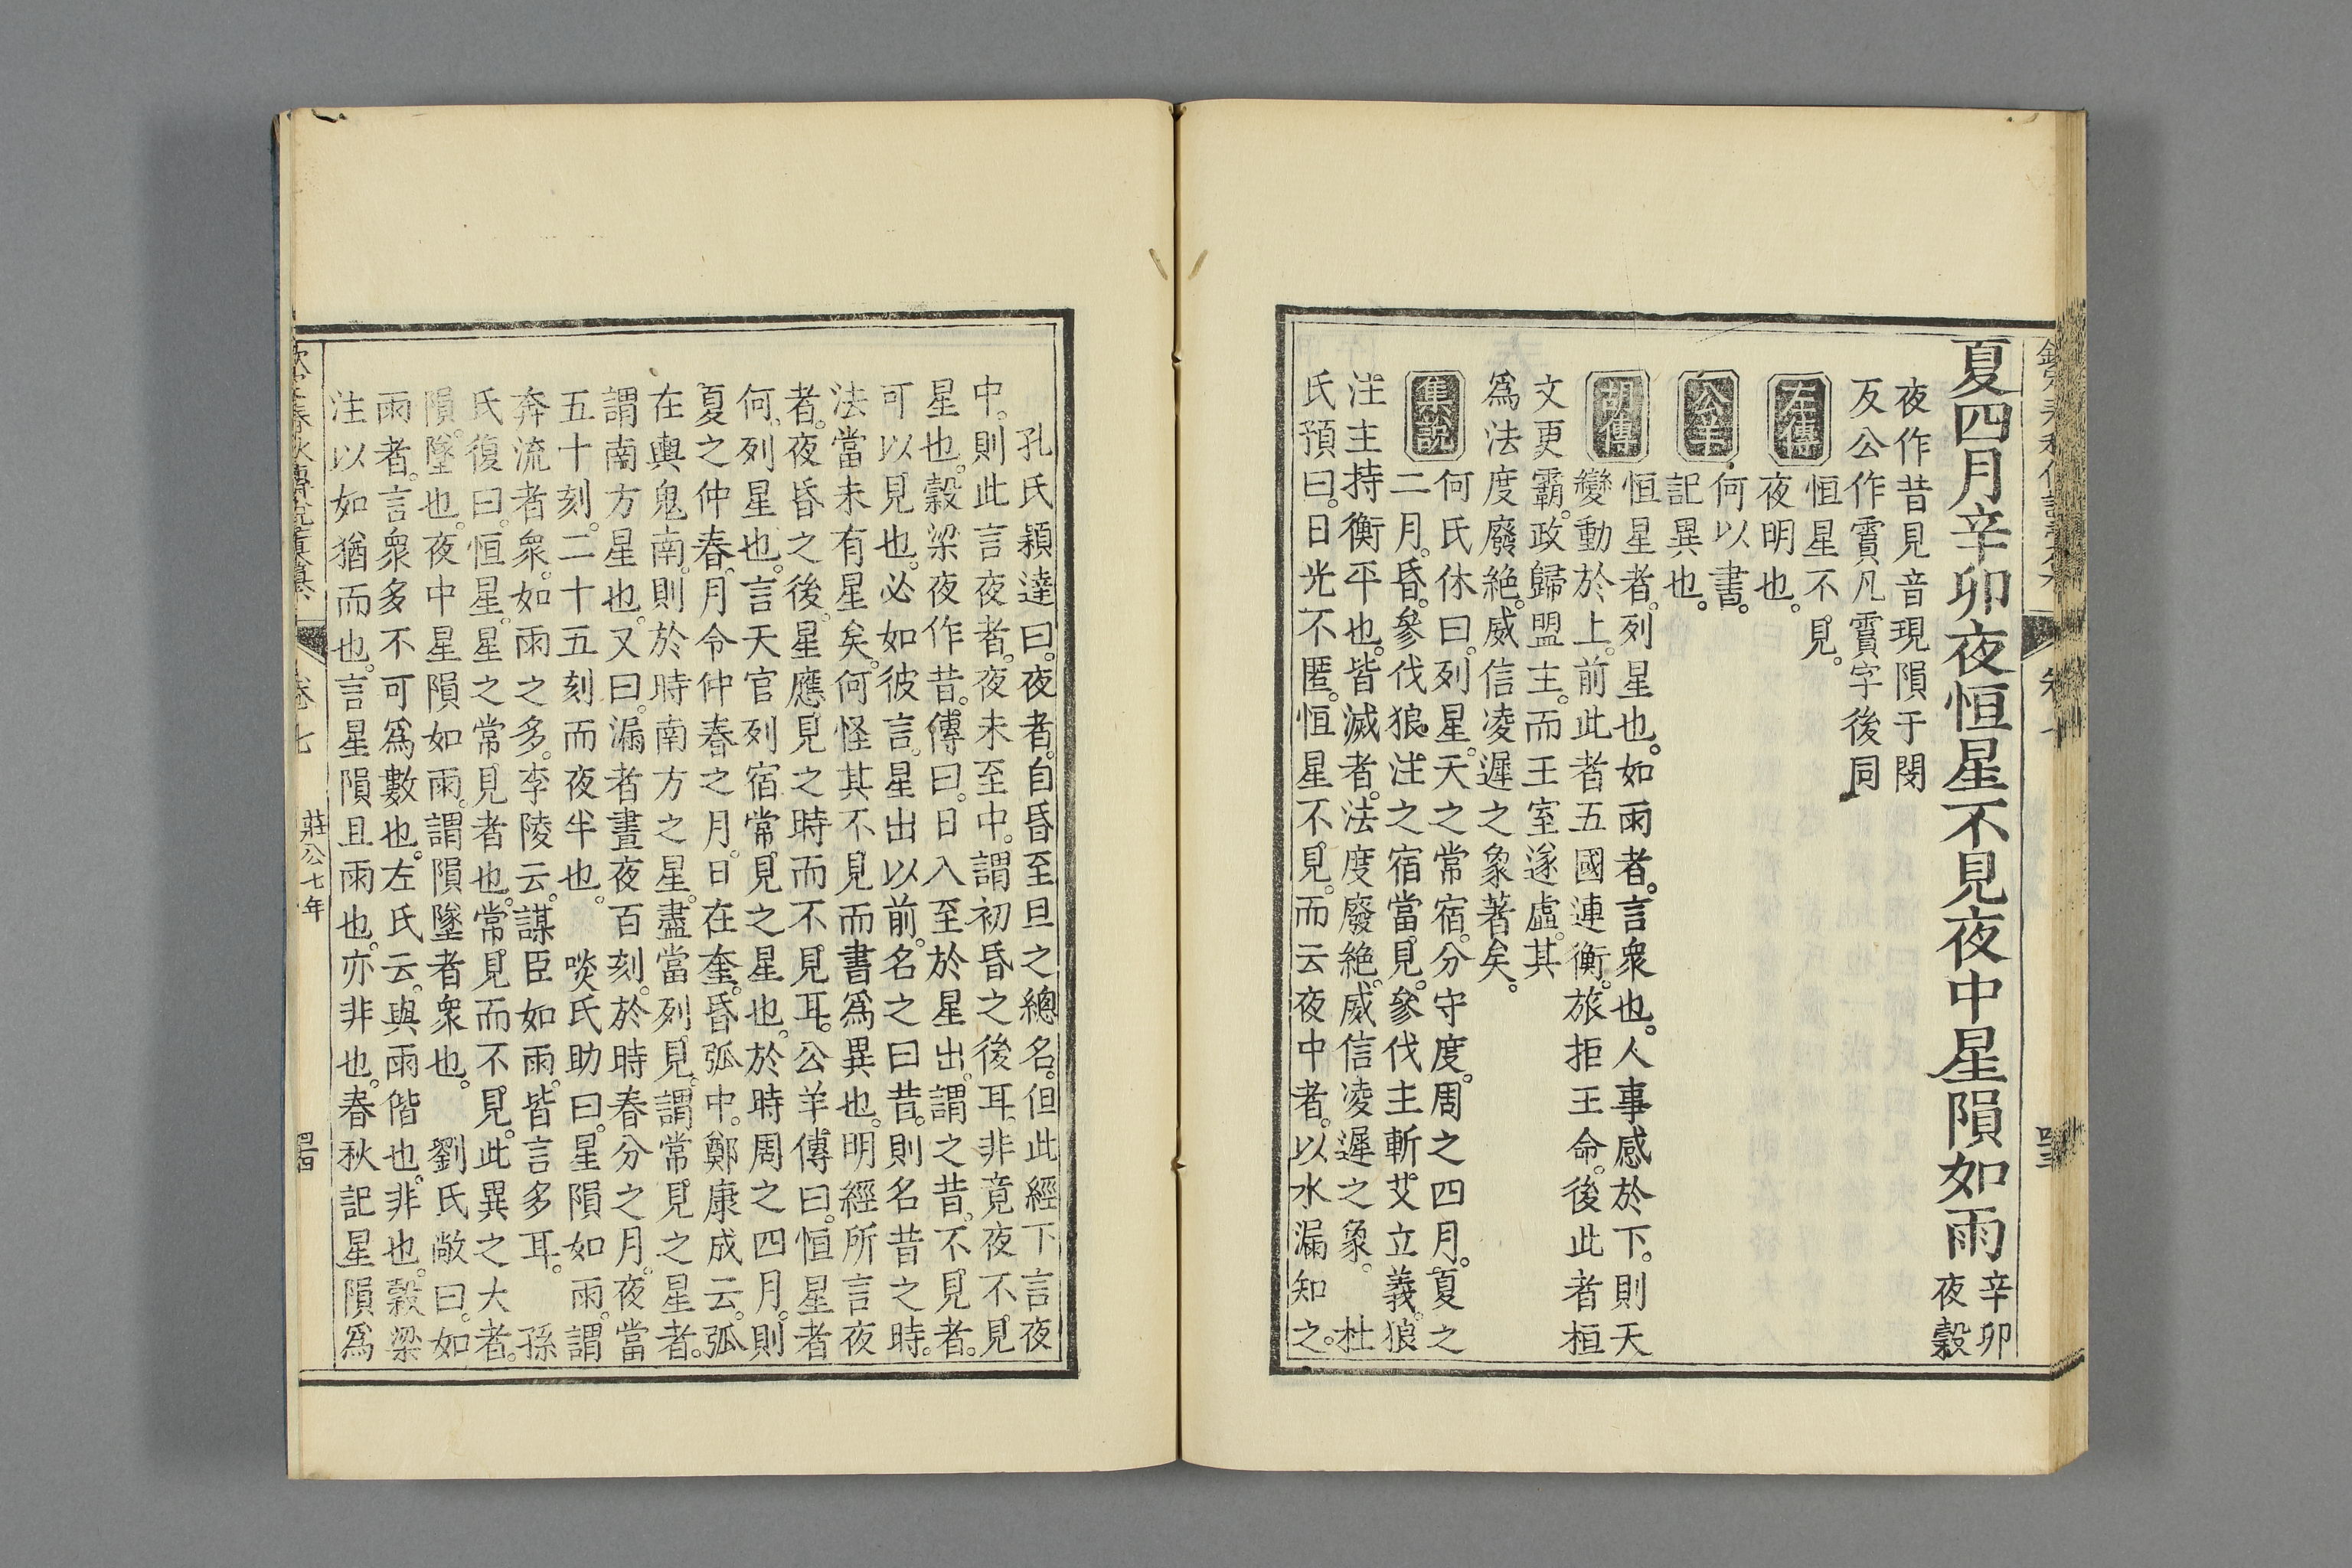 夏四月辛卯夜恒星不見夜中星隕如雨
辛卯
夜穀
夜作昔見音現隕于閔
反公作霣凡霣字後同
左傳
恒星不見。
夜明也。
公羊
何以書。
記異也。
胡傳
恒星者。列星也。如雨者。言衆也。人事感於下。則天
變動於上。前此者五國連衡。旅拒王命。後此者桓
文更霸。政歸盟主。而王室遂虛。其
爲法度廢絶。威信凌遲之象著矣。
集說
何氏休曰。列星。天之常宿。分守度。周之四月。夏之
二月。昏。參伐狼注之宿當見。參伐主斬艾立義。狼
注主持衡平也。皆滅者。法度廢絶。威信凌遲之象。 杜
氏預曰。日光不匿。恒星不見。而云夜中者。以水漏知之。
孔氏穎達曰。夜者。自昏至旦之總名。但此經下言夜
中。則此言夜者。夜未至中。謂初昏之後耳。非竟夜不見
星也。穀梁夜作昔。傳曰。日入至於星出。謂之昔。不見者。
可以見也。必如彼言。星出以前。名之曰昔。則名昔之時。
法當未有星矣。何怪其不見而書爲異也。明經所言夜
者。夜昏之後。星應見之時而不見耳。公羊傳曰。恒星者
何。列星也。言天官列宿常見之星也。於時周之四月。則
夏之仲春。春月令仲春之月。日在奎。昏弧中。鄭康成云。弧
在輿鬼南。則於時南方之星。盡當列見。謂常見之星者。
謂南方星也。又曰。漏者晝夜百刻。於時春分之月。夜當
五十刻。二十五刻而夜半也。 啖氏助曰。星隕如雨。謂
奔流者衆。如雨之多。李陵云。謀臣如雨。皆言多耳。 孫
氏復曰。恒星。星之常見者也。常見而不見。此異之大者。
隕。墜也。夜中星隕如雨。謂隕墜者衆也。 劉氏敞曰。如
雨者。言衆多不可爲數也。左氏云。與雨偕也。非也。穀梁
注以如猶而也。言星隕且雨也。亦非也。春秋記星隕爲
欽定春秋傳說彙纂 卷七 莊公七年